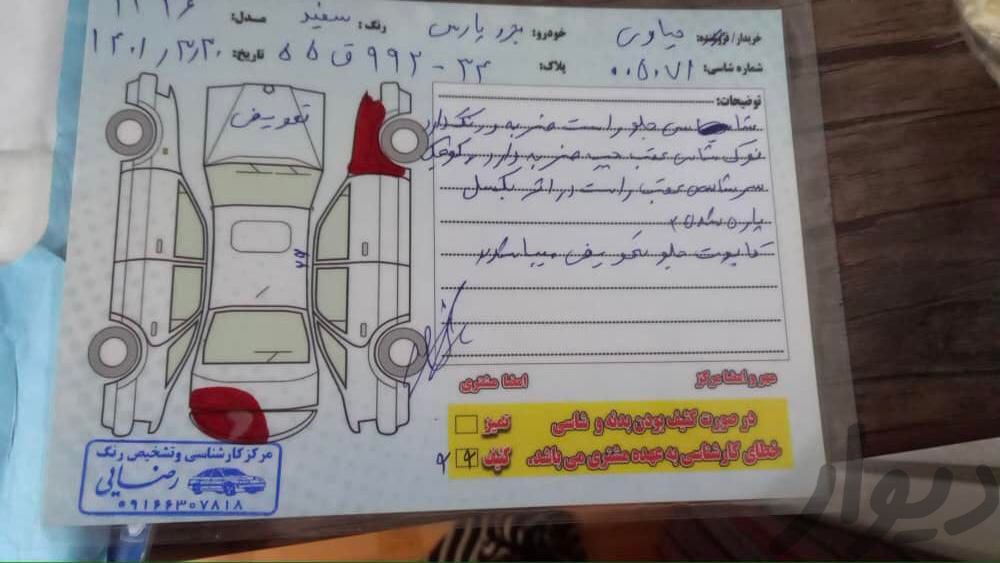 خریدار/ فروشنده: حیاوی خودرو: پژو پارس رنگ: سفید مدل:
شماره شاسی: ۰۰۵۰۷۱ پلاک: ۳۴ - ۹۹۲ ق ۵۵ تاریخ: ۱۴۰۱/۳/۳۰
توضیحات:
شاسی جلو راست ضربه و رنگ دارد
نوک شاسی عقب چپ ضربه دارد کوچک
سرشاسی عقب راست در اثر بکسل
پاره شده
تعویض
مهر و امضا مرکز امضا مشتری
در صورت کثیف بودن بدنه و شاسی
خطای کارشناسی به عهده مشتری می باشد.
تمیز
کثیف
مرکز کارشناسی و تشخیص رنگ
رضایی
۰۹۱۶۶۳۰۷۸۱۸
دیوار